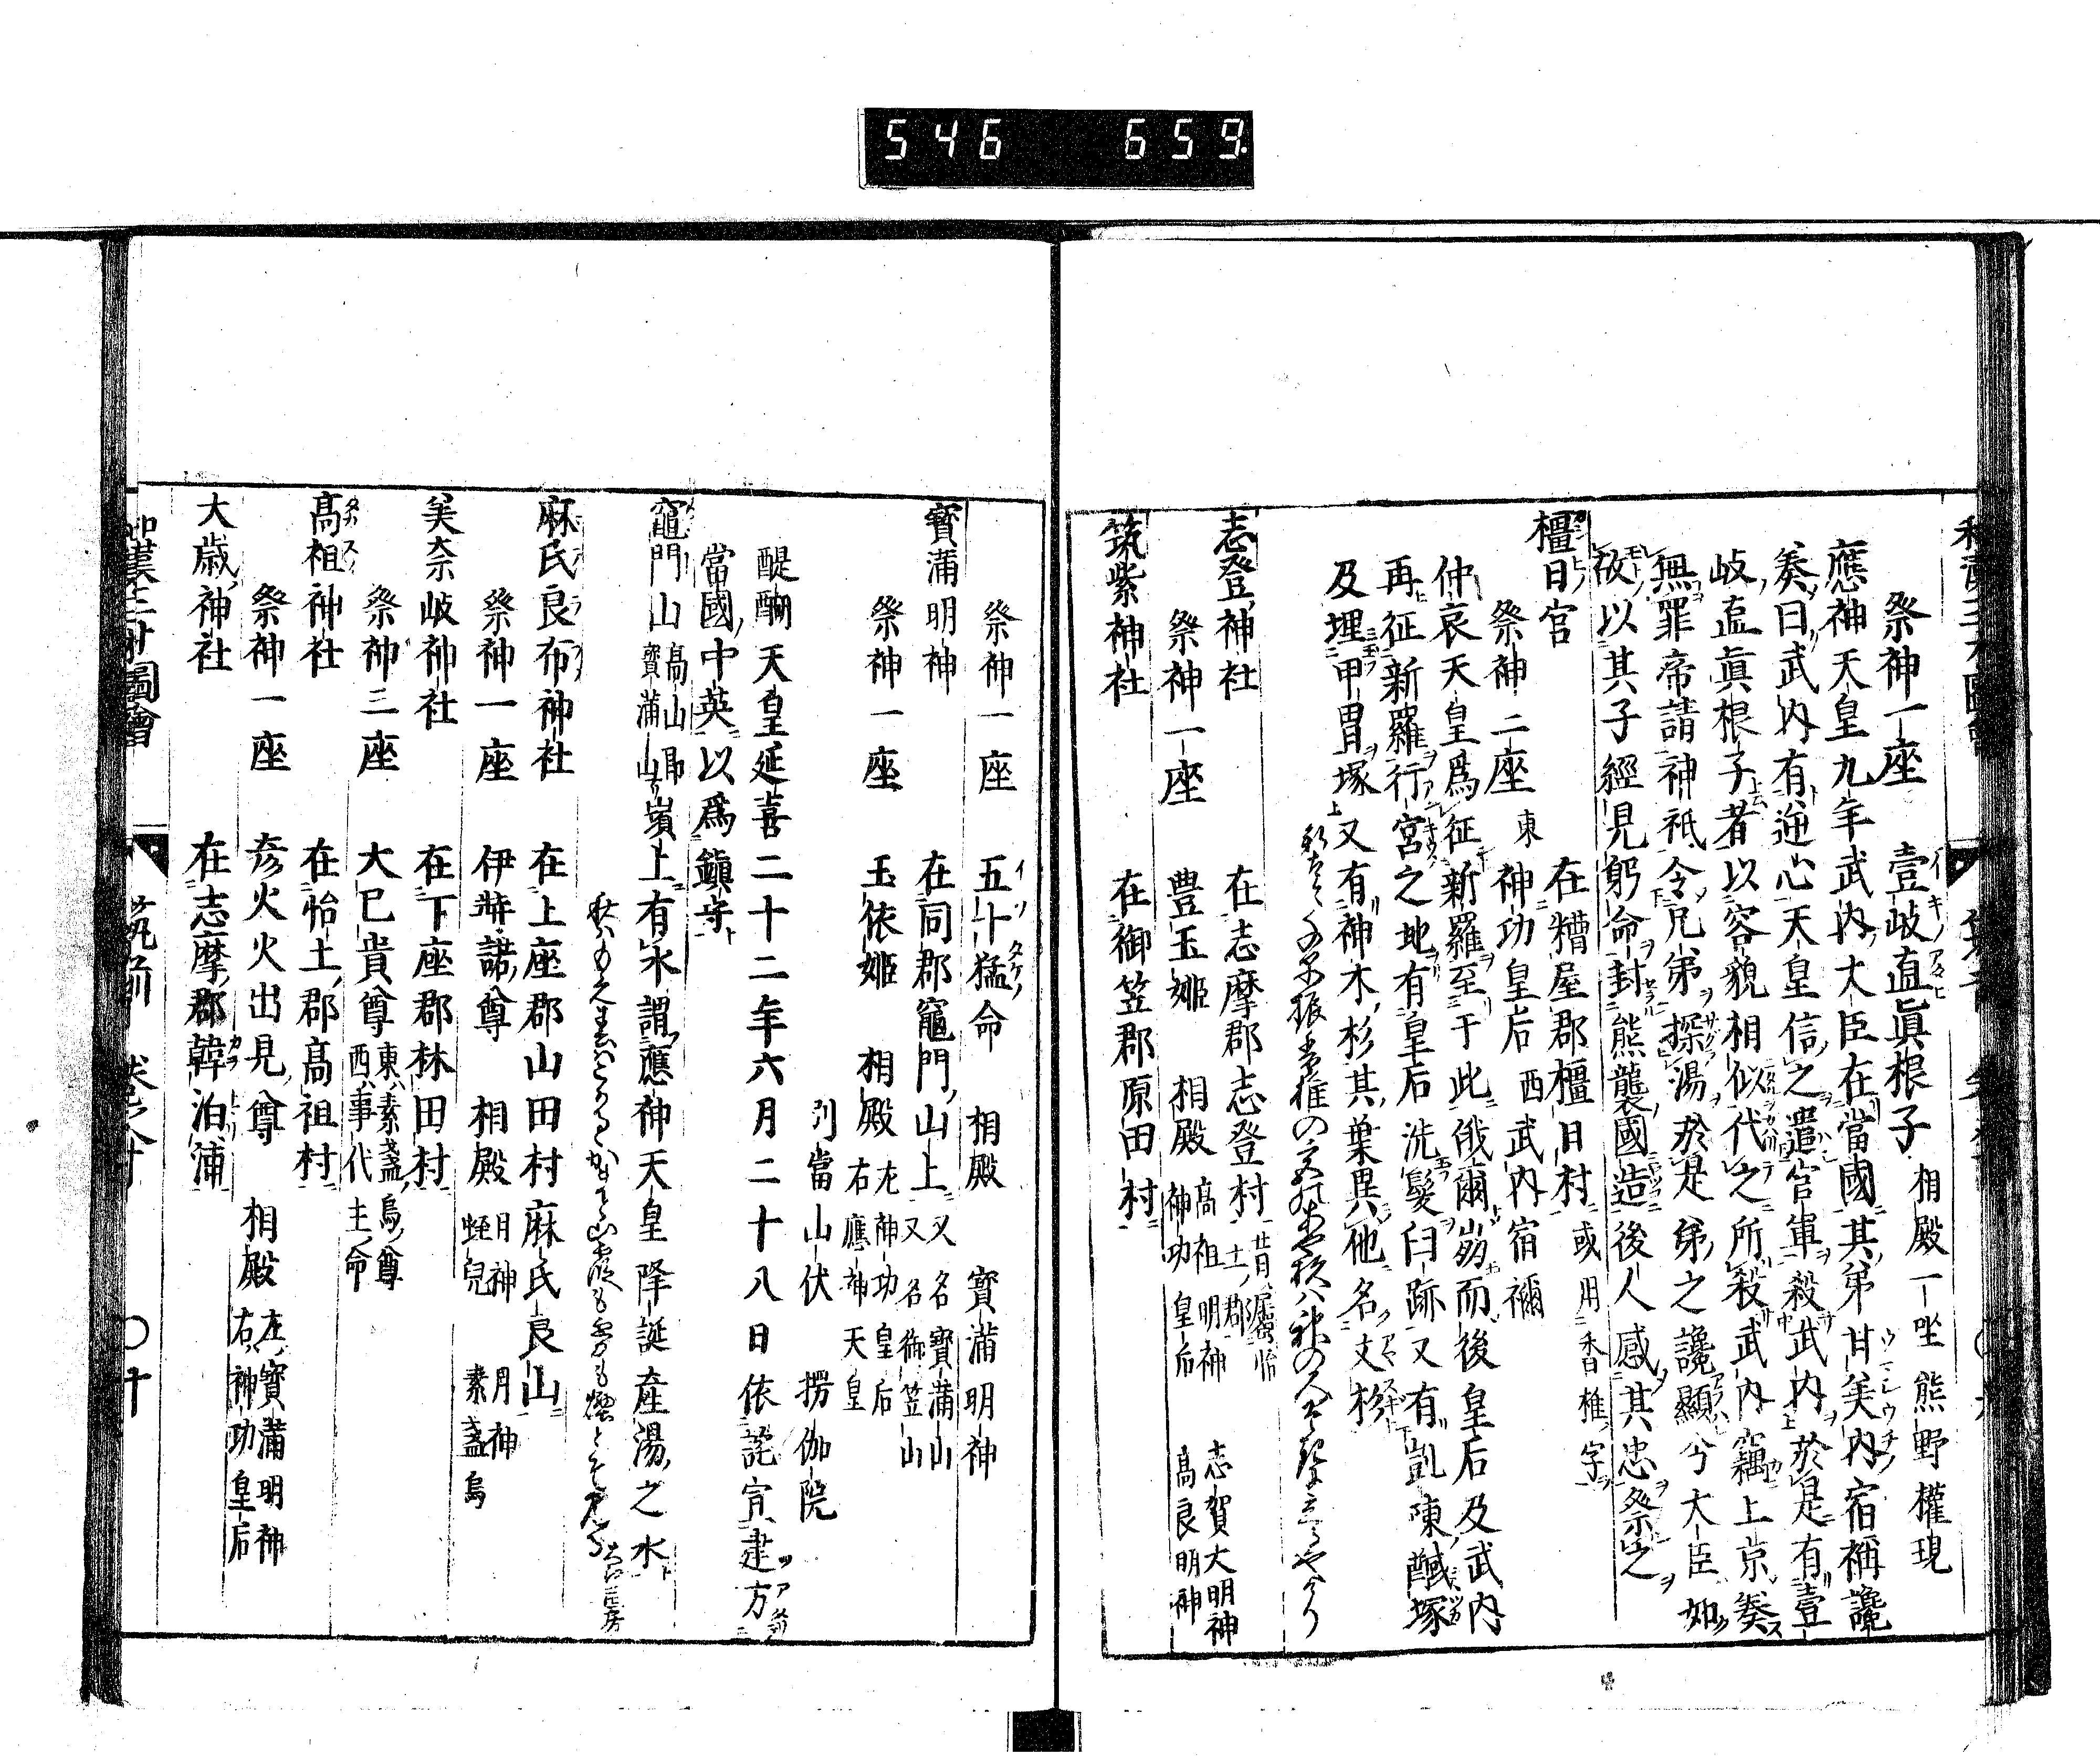 546 659
祭神一座 壹岐直眞根子 相殿一坐熊野權現
應神天皇九年武內大臣在當國其弟甘美內宿禰讒
奏曰武內有逆心天皇信之遣官軍殺武內於是有壹
岐直眞根子者以容貌相似代之所殺武內竊上京奏
無罪帝請神祇令兄弟探湯於是弟之讒顯兮大臣如
故以其子經見躬命封熊襲國造後人感其忠祭之
橿日宮 在糟屋郡橿日村或用香椎字
祭神二座 東神功皇后 西武內宿禰
仲哀天皇爲征新羅至于此俄爾崩而後皇后及武內
再征新羅行宮之地有皇后洗髮臼跡又有凱陳醎塚
及埋甲胄塚又有神木杉其葉異他名丈杉
志登神社 在志摩郡志登村廿日屬怡土郡
祭神一座 豊玉姬 相殿 高祖明神 志賀大明神
神功皇后 高良明神
筑紫神社 在御笠郡原田村
祭神一座 五十猛命 相殿 寶滿明神
寶滿明神 在同郡竈門山上又名寶滿山
又名御笠山
祭神一座 玉依姬 相殿 左神功皇后
右應神天皇
別當山伏 楞伽院
醍醐天皇延喜二十二年六月二十八日依詫宣建方
當國中英以爲鎭守
竈門山 高山即
寶滿山 嶺上有水謂應神天皇降誕產湯之水
麻氏良布神社 在上座郡山田村麻氏良山
祭神一座 伊弉諾尊 相殿 日神 月神
蛭兒 素盞烏
美奈岐神社 在下座郡林田村
祭神三座 大巳貴尊 東素盞烏尊
西事代主命
高祖神社 在怡土郡高祖村
祭神一座 彥火火出見尊 相殿 左寶滿明神
右神功皇后
大歳神社 在志摩郡韓泊浦
和漢三才圖會 筑前 卷之八十 〇十